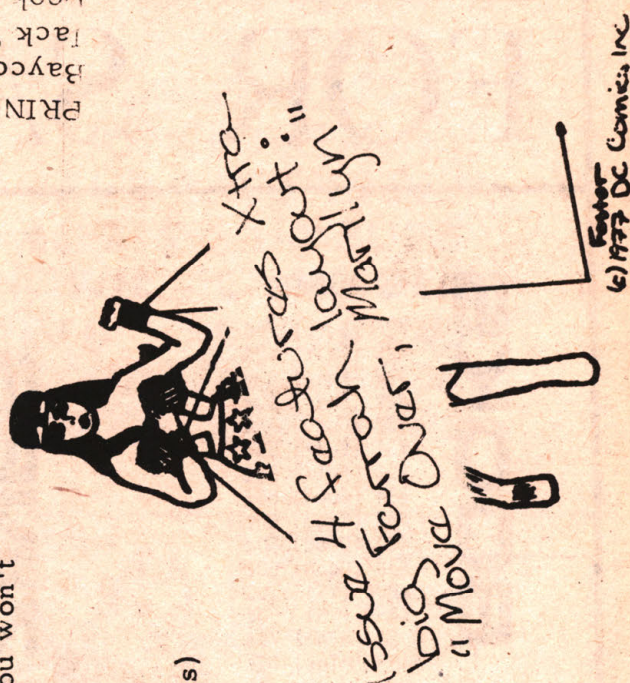 ou won't
s)
issue 4 features Xtra-
big Farrah layout:"
"Move Over, Marilyn
Foster
(c) 1977 DC Comics, Inc
PRIN
Bayco
Jack